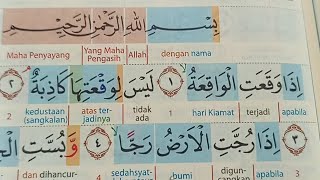 بِسْمِ اللهِ الرَّحْمٰنِ الرَّحِيْمِ
dengan nama Allah Yang Maha Pengasih Maha Penyayang
اِذَا وَقَعَتِ الْوَاقِعَةُ ١ لَيْسَ لِوَقْعَتِهَا كَاذِبَةٌ ٢
apabila terjadi hari Kiamat 1 tidak ada atas terjadinya kedustaan (sangkalan) 2
٣ اِذَا رُجَّتِ الْاَرْضُ رَجًّا ٤ وَّبُسَّتِ
3 apabila digun- bumi sedahsyat- 4 dan dihancur-